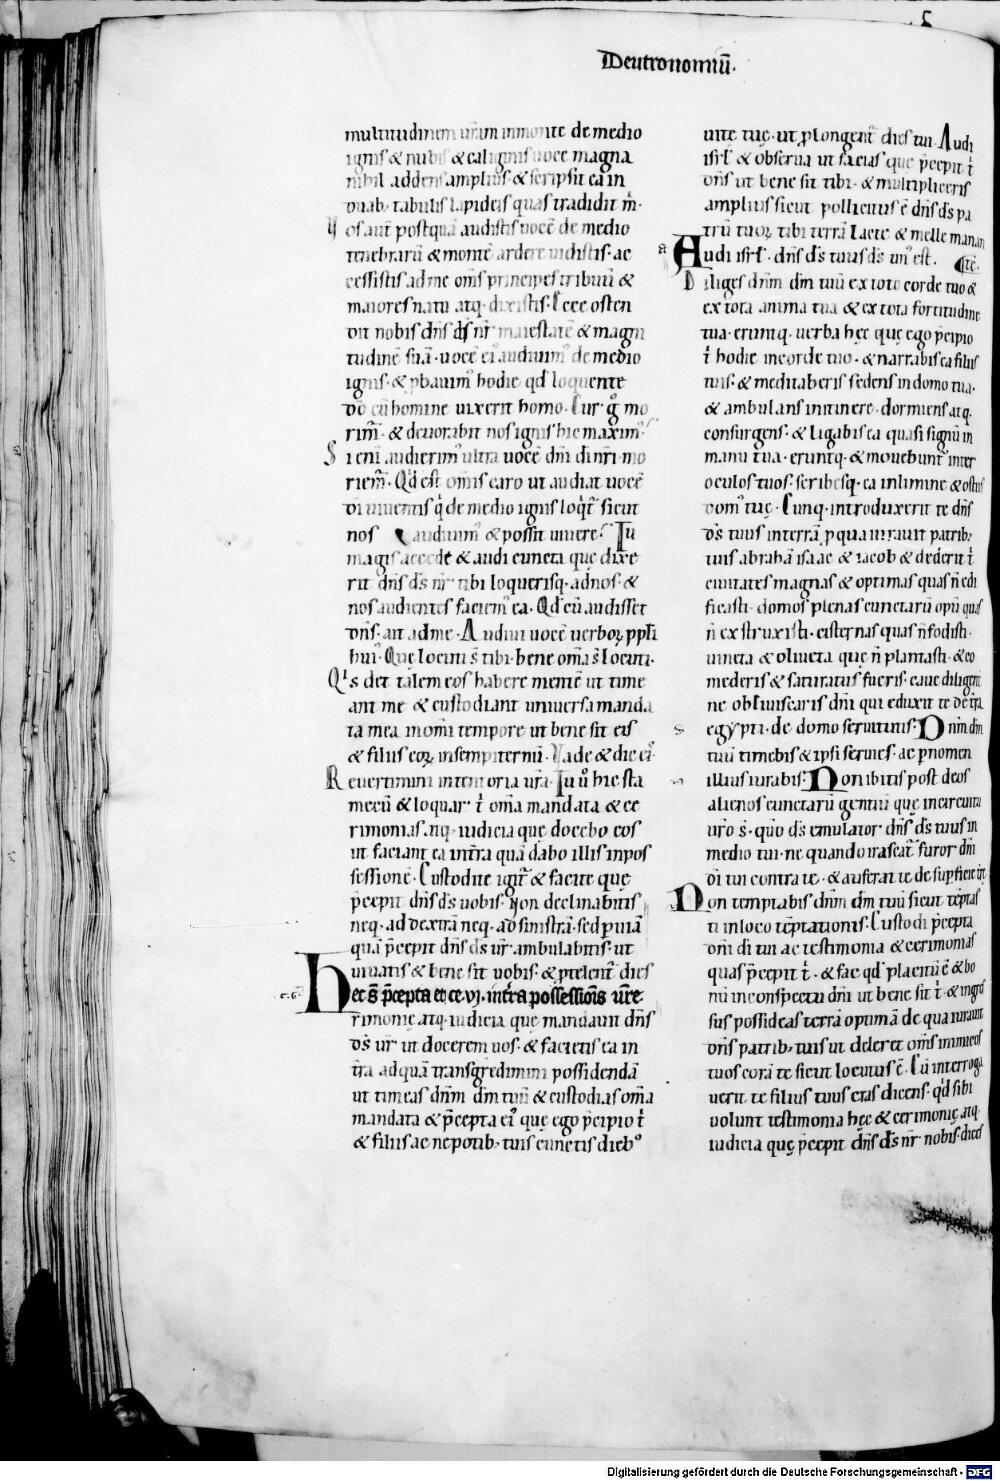 Deutronomiū.
multitudinem urām inmonte de medio
ignis & nubis & caliginis uoce magna
nihil addens amplius. & scripsit ea in
duab; tabulis lapideis quas tradidit m̄.
Uos aut postquā audistis uocē de medio
tenebrarū & montē ardere uidistis. ac
cessistis ad me om̄s principes tribuū &
maiores natu atq; dixistis. Ecce osten
dit nobis dn̄s ds̄ nr̄ maiestatē & magni
tudinē suā. uocē eiꝰ audiuimꝰ de medio
ignis. & ꝓbauimꝰ hodie qd̄ loquente
dō cū homine uixerit homo. Cur gͦ mo
rim̄. & deuorabit nos ignis hic maximꝰ.
Si eni audierimꝰ ultra uocē dn̄i di nr̄i. mo
riem̄. Qd̄ est om̄is caro ut audiat uocē
di uiuentis q̄ de medio ignis loqt̄ sicut
nos audiuimꝰ & possit uiuere. Tu
magis accede & audi cuncta que dixe
rit dn̄s ds̄ nr̄ tibi loquerisq; ad nos. &
nos audientes faciemꝰ ea. Qd̄ cū audisset
dn̄s. ait ad me. Audiui uocē uerboꝝ ppl̄i
huiꝰ. Quę locuti s̄ tibi. bene om̄a s̄ locuti.
Qis det talem eos habere mentē ut time
ant me & custodiant uniuersa manda
ta mea in om̄i tempore ut bene sit eis
& filiis eoꝝ in sempiternū. Vade & dic eiꝰ.
Reuertimini in tentoria urā. Tu uͦ hic sta
mecū & loquar t̄ om̄a mandata & ce
rimonias. atq; iudicia que docebo eos
ut faciant ea in tr̄a quā dabo illis in pos
sessionē. Custodite igit̄ & facite que
p̄cepit dn̄s ds̄ uobis. Non declinabitis
neq; ad dextrā neq; ad sinistrā. sed ꝑ uiā
quā p̄cepit dn̄s ds̄ ur̄. ambulabitis. ut
uiuatis & bene sit uobis. & ꝓtelent̄ dies
Hec s̄ p̄cepta et ce.vj. in tr̄a possessiōis ur̄e.
rimonię atq; iudicia que mandauit dn̄s
ds̄ ur̄ ut docerem uos. & faciatis ea in
tr̄a ad quā transgredimini possidendā
ut timeas dn̄m dm̄ tuū & custodias om̄a
mandata & p̄cepta eiꝰ que ego p̄cipio t̄
& filiis ac nepotib; tuis cunctis diebꝰ
uitę tuę. ut ꝓlongent̄ dies tui. Audi
isrl̄ & obserua ut facias que p̄cepit t̄
dn̄s ut bene sit tibi. & multipliceris
amplius sicut pollicitus ē dn̄s ds̄ pa
trū tuoꝝ tibi terrā lacte & melle manan
Audi isrl̄. dn̄s ds̄ tuus ds̄ unꝰ est. tē.
Diliges dn̄m dm̄ tuū ex toto corde tuo &
ex tota anima tua & ex tota fortitudine
tua. eruntq; uerba hęc que ego p̄cipio
t̄ hodie in corde tuo. & narrabis ea filiis
tuis. & meditaberis sedens in domo tua.
& ambulans in itinere. dormiens atq;
consurgens. & ligabis ea quasi signū in
manu tua. eruntq; & mouebunt̄ inter
oculos tuos. scribesq; ea in limine & ostiis
domꝰ tuę. Cunq; introduxerit te dn̄s
ds̄ tuus in terrā ꝑ qua iurauit patrib;
tuis abrahā isaac & iacob & dederit t̄
ciuitates magnas & optimas quas n̄ edi
ficasti. domos plenas cunctarū opū quas
n̄ exstruxisti. cisternas quas n̄ fodisti.
uineta & oliueta que n̄ plantasti. & co
mederis & saturatus fueris. caue diligent̄
ne obliuiscaris dn̄i qui eduxit te de tr̄a
egypti. de domo seruitutis. Dn̄m dm̄
tuū timebis & ipsi seruies. ac ꝑ nomen
illius iurabis. Non ibitis post deos
alienos cunctarū gentiū que in circuitu
uro s̄. quo ds̄ emulator dn̄s ds̄ tuus in
medio tui. ne quando irascat̄ furor dn̄i
di tui contra te. & auferat te de supficie tr̄e.
Non temptabis dn̄m dm̄ tuū sicut tēptas
ti in loco tēptationis. Custodi p̄cepta
dn̄i di tui ac testimonia & cerimonias
quas p̄cepit t̄. & fac qd̄ placitū ē & bo
nū in conspectu dn̄i ut bene sit t̄. & ingres
sus possideas terrā optimā de qua iurauit
dn̄s patrib; tuis ut deleret om̄s inimicos
tuos corā te sicut locutus ē. Cū interroga
uerit te filius tuus cras dicens. qd̄ sibi
uolunt testimonia hęc & cerimonię atq;
iudicia quę p̄cepit dn̄s ds̄ nr̄ nobis. dices
Digitalisierung gefördert durch die Deutsche Forschungsgemeinschaft - DFG